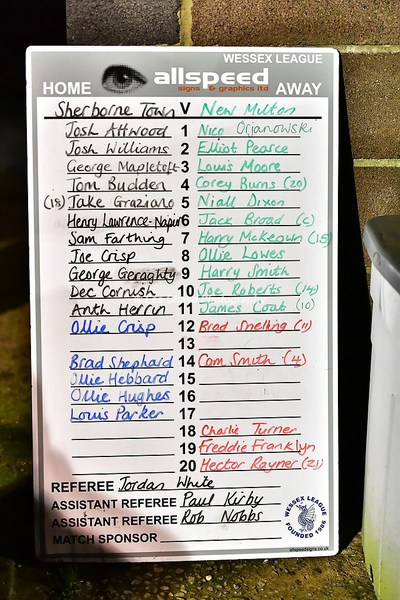 WESSEX LEAGUE
HOME allspeed AWAY
signs & graphics ltd
Sherborne Town V New Milton
Josh Attwood 1 Nico Orjanowski
Josh Williams 2 Elliot Pearce
George Mapletoft 3 Louis Moore
Tom Budden 4 Corey Burns (20)
(18) Jake Graziano 5 Niall Dixon
Henry Lawrence-Napier 6 Jack Broad (c)
Sam Farthing 7 Harry McKeown (15)
Joe Crisp 8 Ollie Lowes
George Geraghty 9 Harry Smith
Dec Cornish 10 Joe Roberts (14)
Anth Herrin 11 James Coat (10)
Ollie Crisp 12 Brad Snelling (11)
13
Brad Shephard 14 Cam Smith (4)
Ollie Hebbard 15
Ollie Hughes 16
Louis Parker 17
18 Charlie Turner
19 Freddie Franklyn
20 Hector Rayner (21)
REFEREE Jordan White
ASSISTANT REFEREE Paul Kirby
ASSISTANT REFEREE Rob Nobbs
MATCH SPONSOR
WESSEX LEAGUE
FOUNDED 1986
allspeedsigns.co.uk